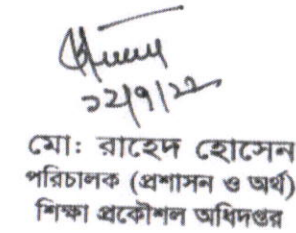 ২২/৭/২২
মো: রাহেদ হোসেন
পরিচালক (প্রশাসন ও অর্থ)
শিক্ষা প্রকৌশল অধিদপ্তর